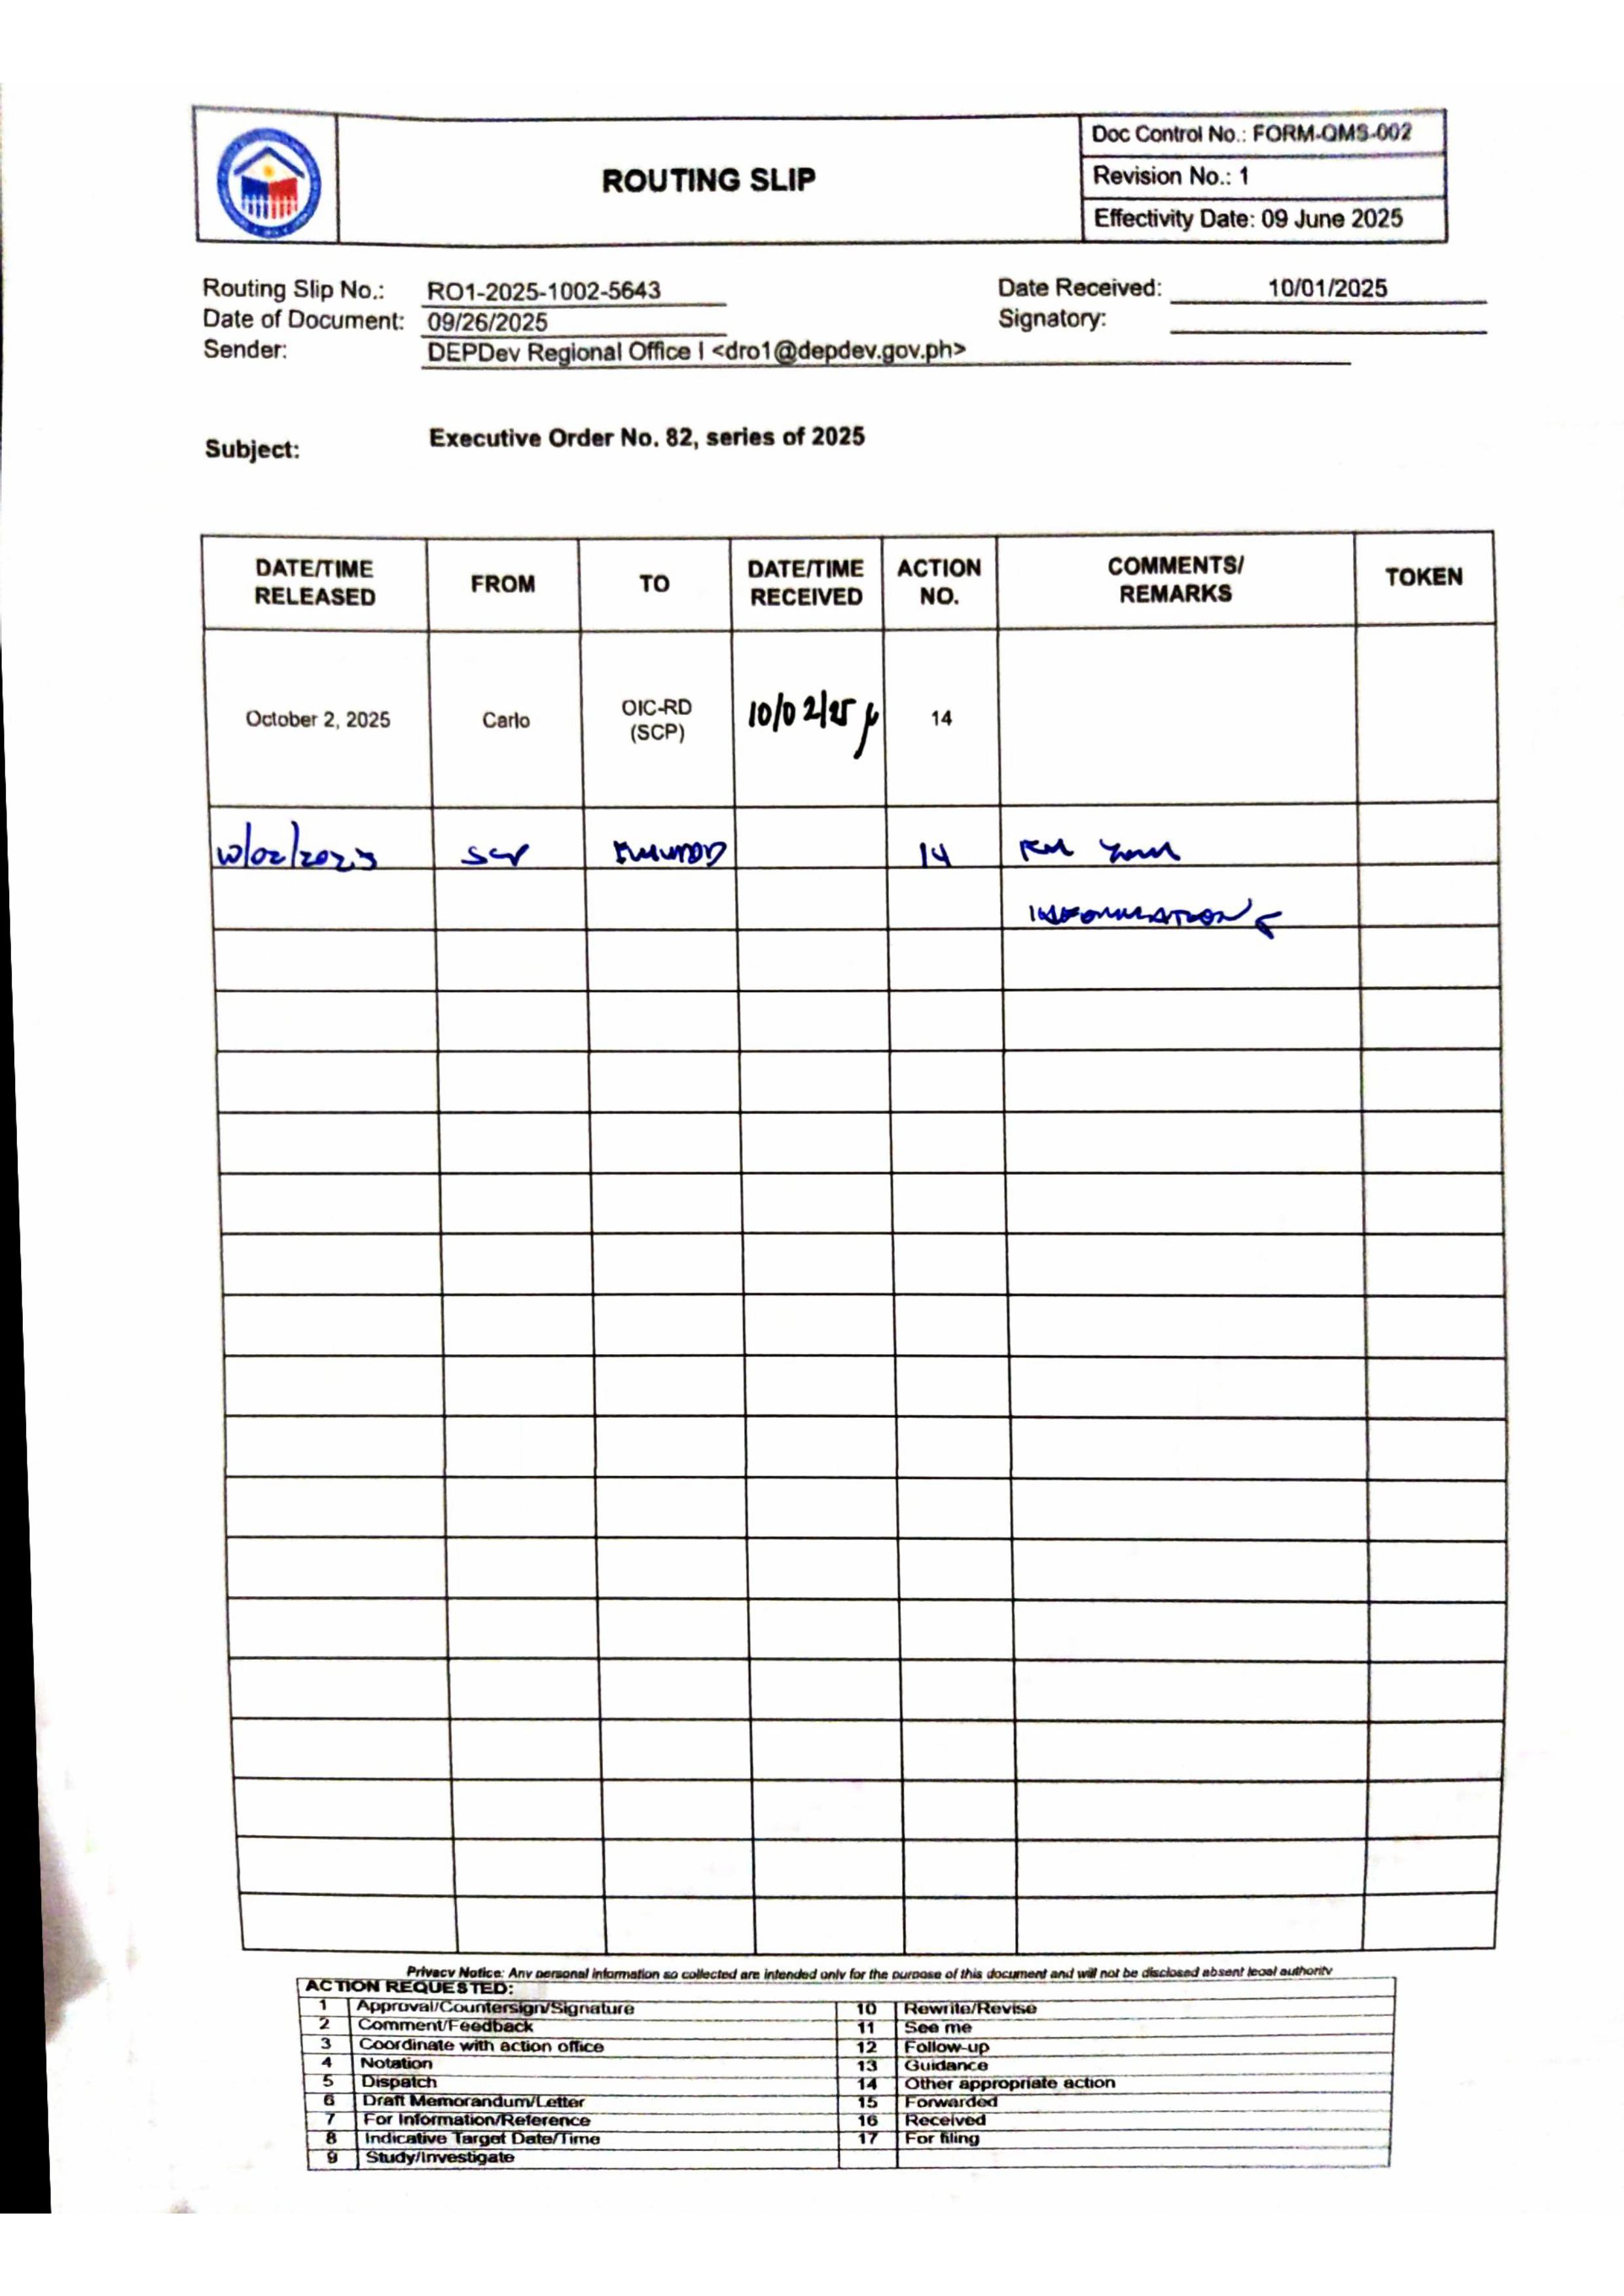 ROUTING SLIP
Doc Control No.: FORM-QMS-002
Revision No.: 1
Effectivity Date: 09 June 2025
Routing Slip No.: RO1-2025-1002-5643
Date Received: 10/01/2025
Date of Document: 09/26/2025
Signatory:
Sender: DEPDev Regional Office I <dro1@depdev.gov.ph>
Subject: Executive Order No. 82, series of 2025
DATE/TIME RELEASED FROM TO DATE/TIME RECEIVED ACTION NO. COMMENTS/ REMARKS TOKEN
October 2, 2025 Carlo OIC-RD (SCP) 10/02/25 14
10/02/2025 SCP 14 FOR YOUR
INFORMATION
Privacy Notice: Any personal information so collected are intended only for the purpose of this document and will not be disclosed absent legal authority
ACTION REQUESTED:
1 Approval/Countersign/Signature 10 Rewrite/Revise
2 Comment/Feedback 11 See me
3 Coordinate with action office 12 Follow-up
4 Notation 13 Guidance
5 Dispatch 14 Other appropriate action
6 Draft Memorandum/Letter 15 Forwarded
7 For Information/Reference 16 Received
8 Indicative Target Date/Time 17 For filing
9 Study/Investigate